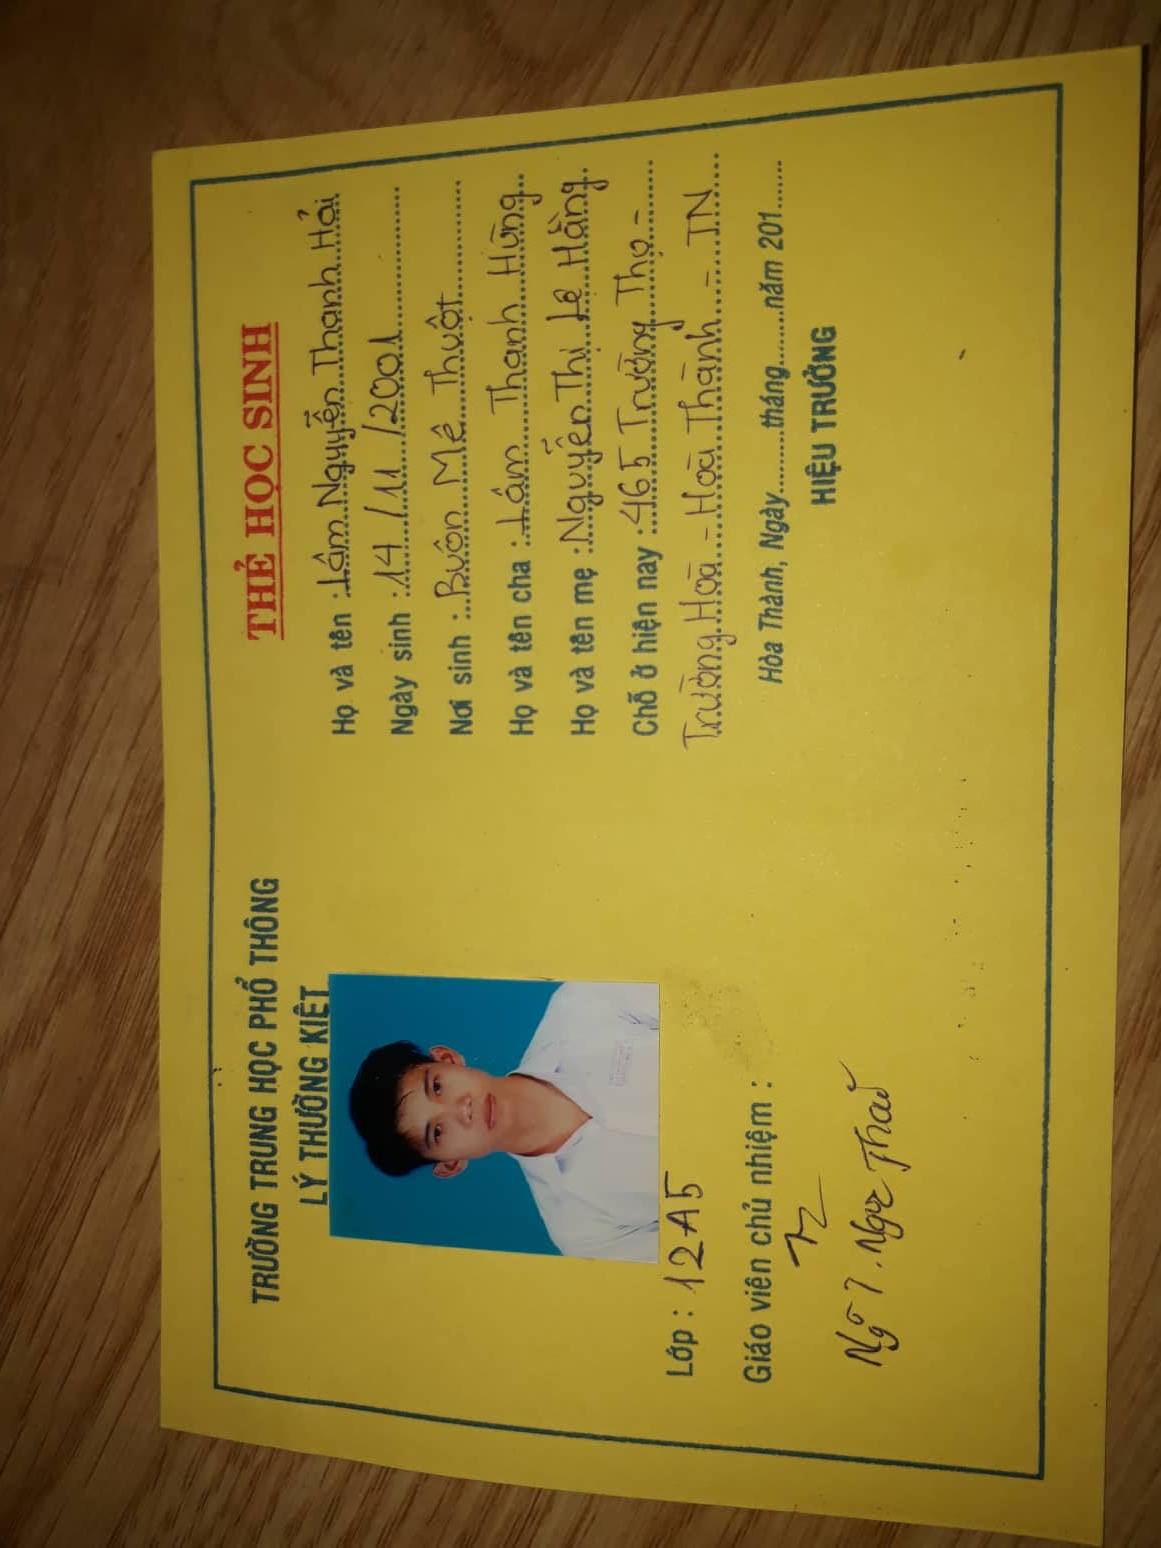 TRƯỜNG TRUNG HỌC PHỔ THÔNG
LÝ THƯỜNG KIỆT
Lớp : 12A5
Giáo viên chủ nhiệm :
Ngô T. Ngọc Thảo
THẺ HỌC SINH
Họ và tên : Lâm Nguyễn Thanh Hải
Ngày sinh : 14 / 11 / 2001
Nơi sinh : Buôn Mê Thuột
Họ và tên cha : Lâm Thanh Hùng
Họ và tên mẹ : Nguyễn Thị Lệ Hằng
Chỗ ở hiện nay : 465 Trường Thọ -
Trường Hoà - Hoà Thành - TN
Hòa Thành, Ngày.........tháng.........năm 201......
HIỆU TRƯỞNG